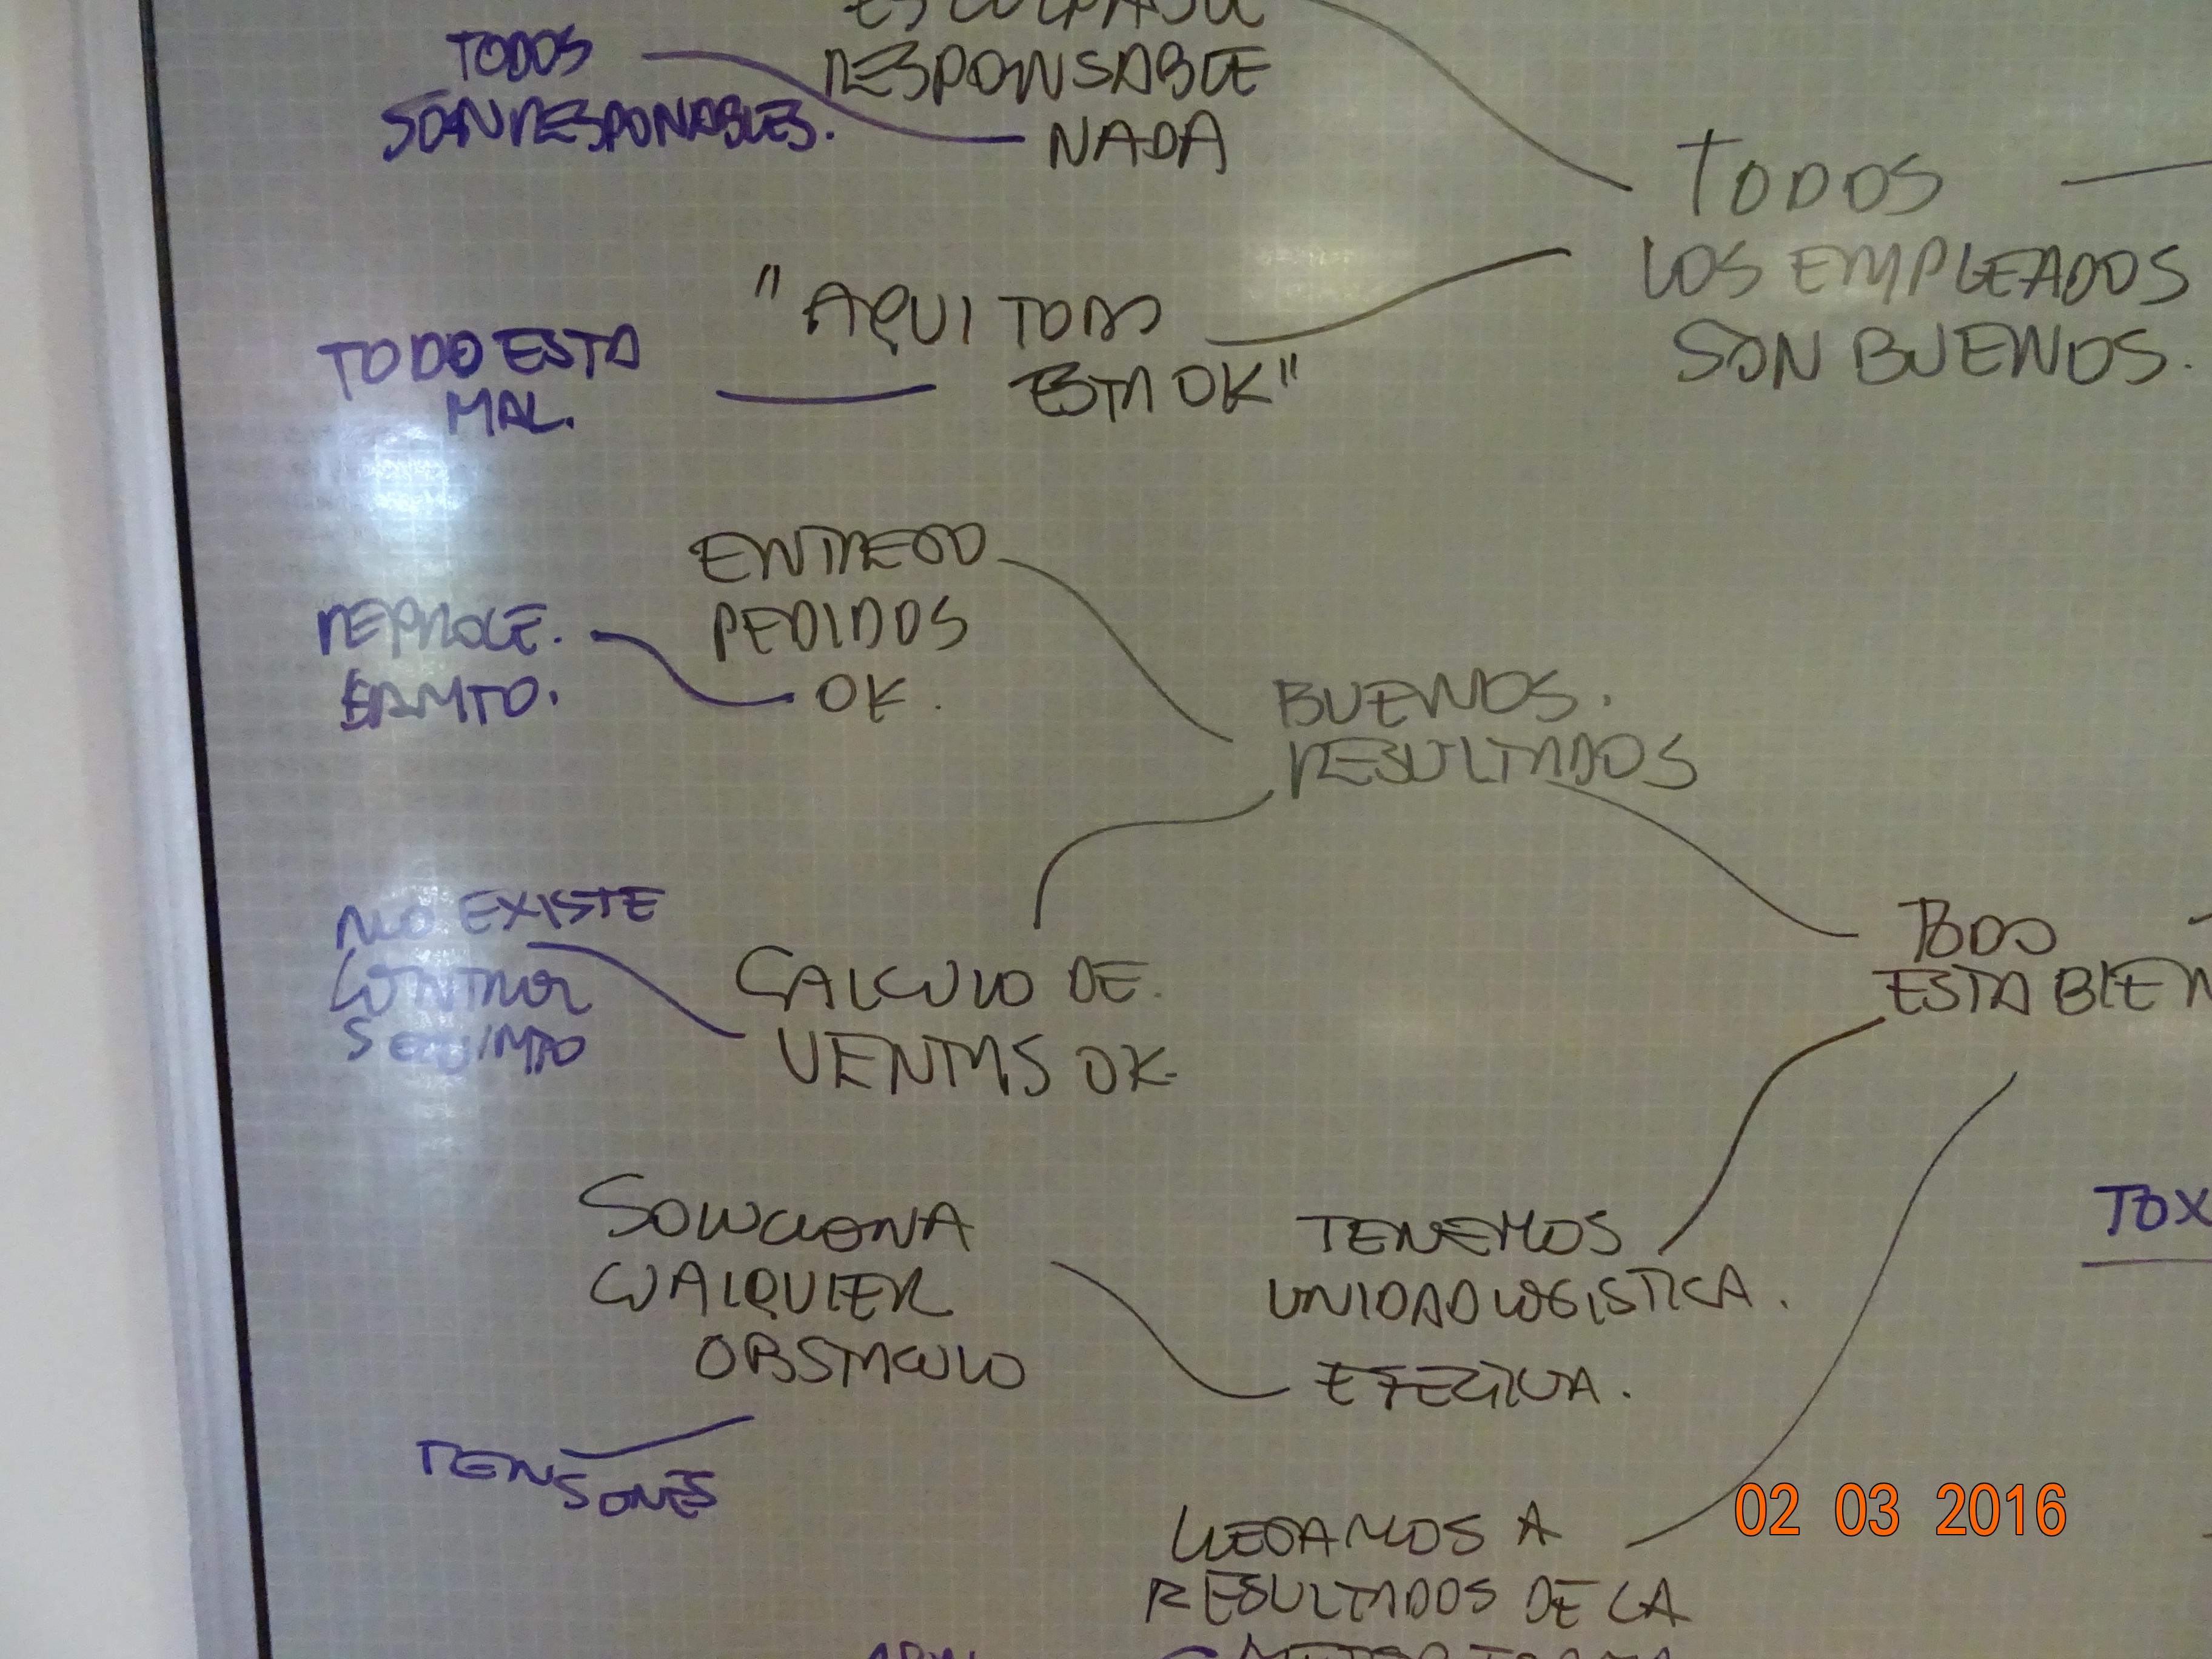 TODOS
SON RESPONABLES.
RESPONSABLE
NADA
TODOS
LOS EMPLEADOS
SON BUENOS.
"AQUI TODO
ESTA OK"
TODO ESTA
MAL.
ENTREGO
PEDIDOS
OK.
REPROCE.
SAMTO.
BUENOS.
RESULTADOS
NO EXISTE
CONTROL
CALCULO DE.
VENTAS OK.
TODO
ESTA BIEN
SOLUCIONA
CUALQUIER
OBSTACULO
TENEMOS
UNIDAD LOGISTICA.
EFECTIVA.
TOX
TENSONES
LLEGAMOS A
RESULTADOS DE LA
02 03 2016